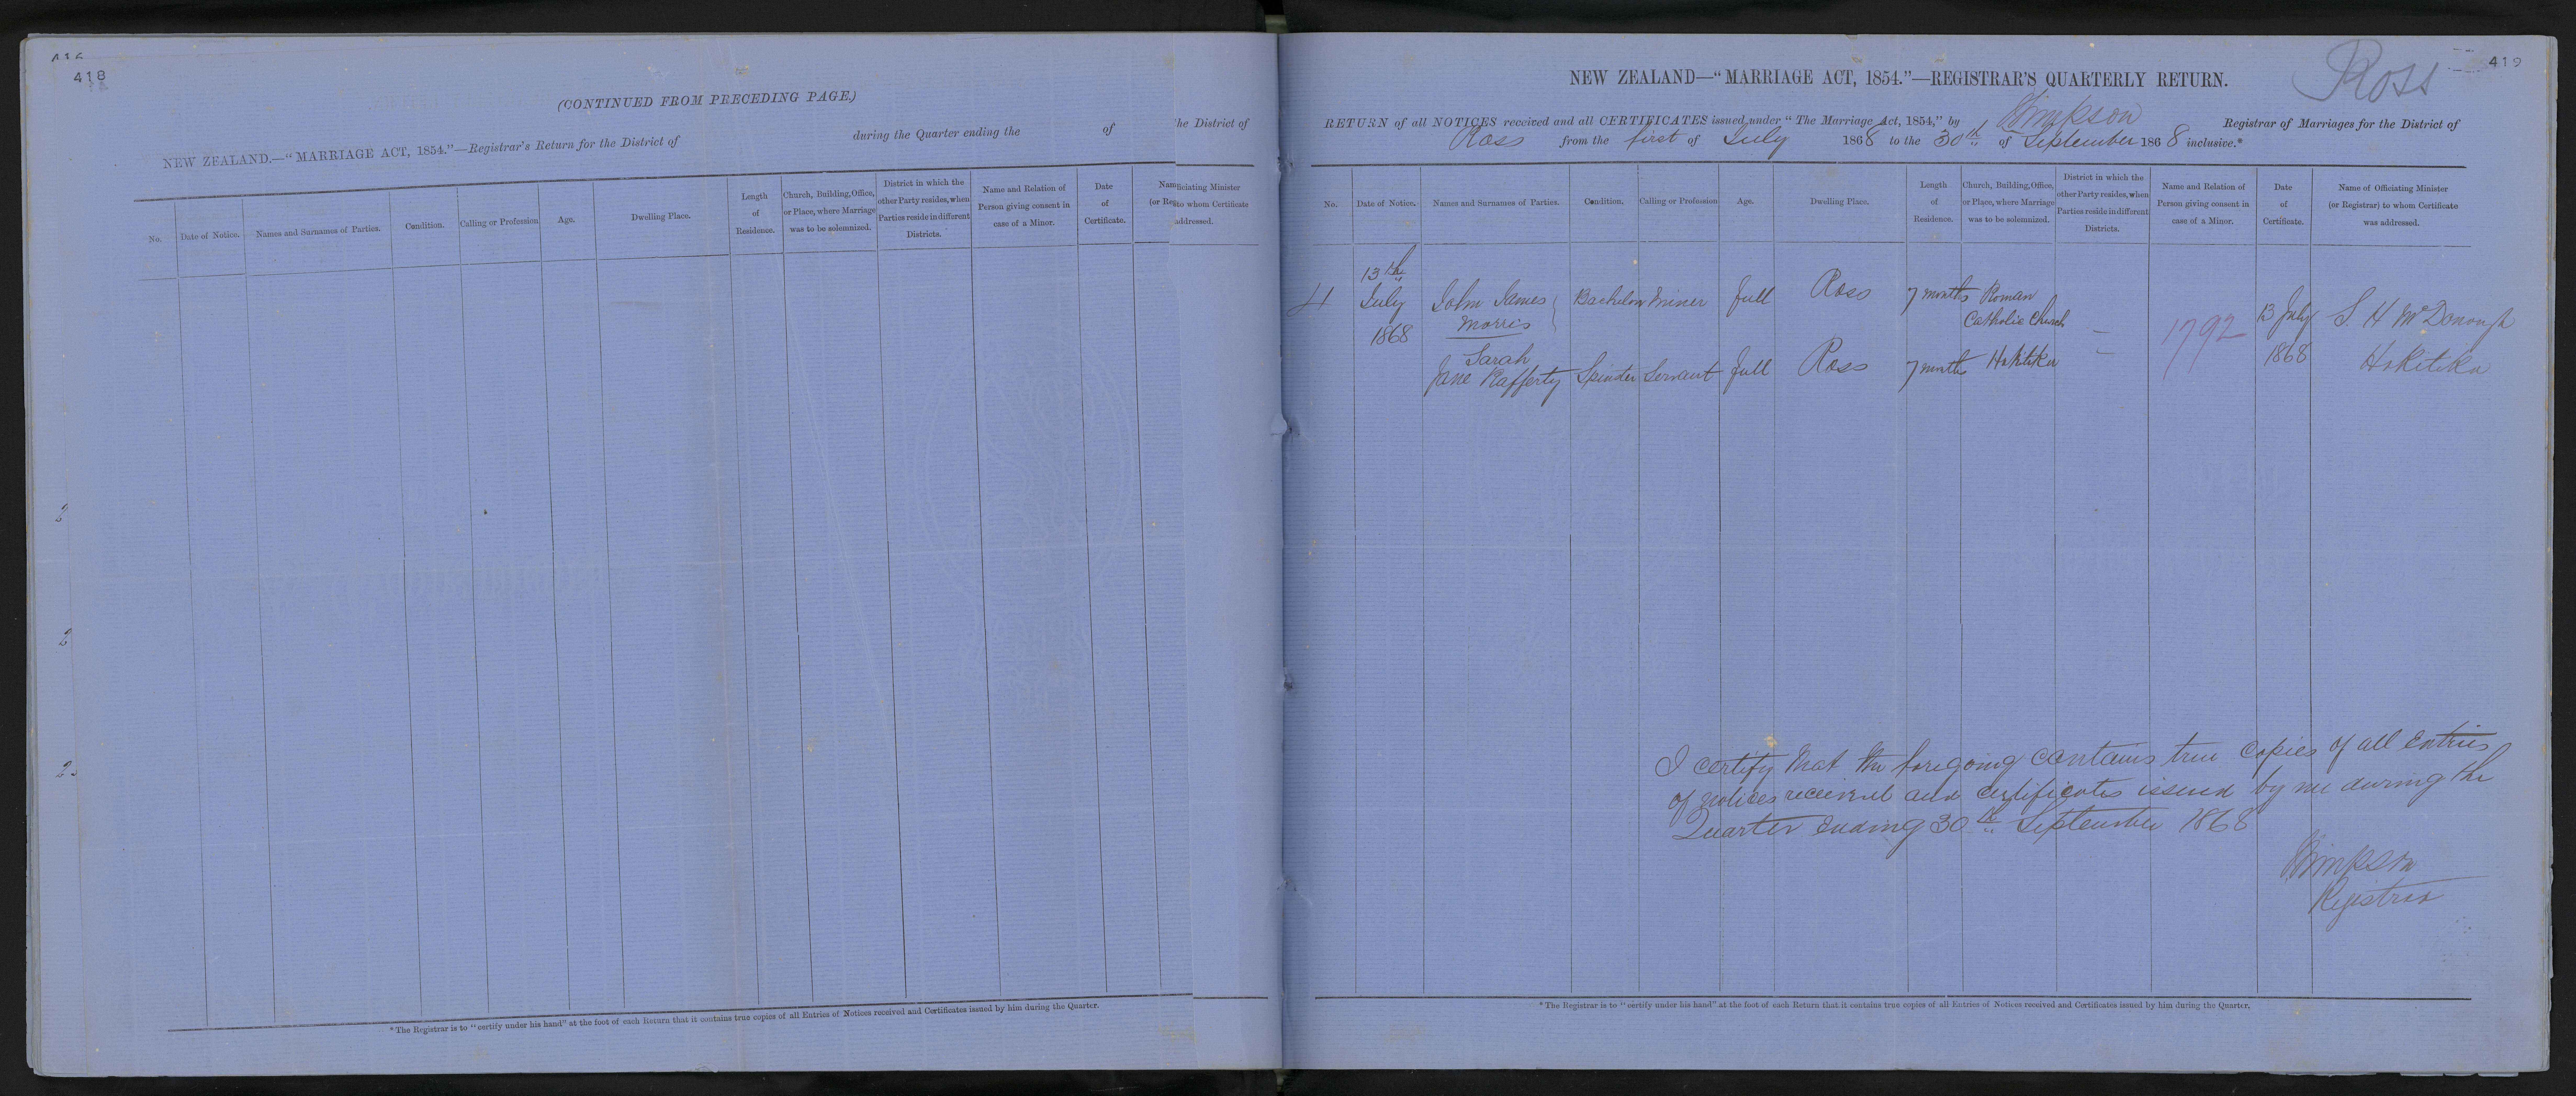 418
(CONTINUED FROM PRECEDING PAGE.)
NEW ZEALAND.—"MARRIAGE ACT, 1854."—Registrar's Return for the District of during the Quarter ending the of
he District of
No.
Date of Notice.
Names and Surnames of Parties.
Condition.
Calling or Profession
Age.
Dwelling Place.
Length
of
Residence.
Church, Building, Office,
or Place, where Marriage
was to be solemnized.
District in which the
other Party resides, when
Parties reside in different
Districts.
Name and Relation of
Person giving consent in
case of a Minor.
Date
of
Certificate.
Nam
(or Reg
iciating Minister
to whom Certificate
addressed.
2
2
2
* The Registrar is to "certify under his hand" at the foot of each Return that it contains true copies of all Entries of Notices received and Certificates issued by him during the Quarter.
419
Ross
NEW ZEALAND—"MARRIAGE ACT, 1854."—REGISTRAR'S QUARTERLY RETURN.
RETURN of all NOTICES received and all CERTIFICATES issued under "The Marriage Act, 1854," by Simpson Registrar of Marriages for the District of
Ross from the first of July 1868 to the 30th of September 1868 inclusive.*
No.
Date of Notice.
Names and Surnames of Parties.
Condition.
Calling or Profession
Age.
Dwelling Place.
Length
of
Residence.
Church, Building, Office,
or Place, where Marriage
was to be solemnized.
District in which the
other Party resides, when
Parties reside in different
Districts.
Name and Relation of
Person giving consent in
case of a Minor.
Date
of
Certificate.
Name of Officiating Minister
(or Registrar) to whom Certificate
was addressed.
4
13th
July
1868
John James
Morris
Bachelor
Miner
full
Ross
7 months
Roman
Catholic Church
Hokitika
—
—
1792
13 July
1868
S. H McDonough
Hokitika
Sarah
Jane Rafferty
Spinster
Servant
full
Ross
7 months
I certify that the foregoing contains true copies of all entries
of notices received and certificates issued by me during the
Quarter ending 30th September 1868
Simpson
Registrar
* The Registrar is to "certify under his hand" at the foot of each Return that it contains true copies of all Entries of Notices received and Certificates issued by him during the Quarter.